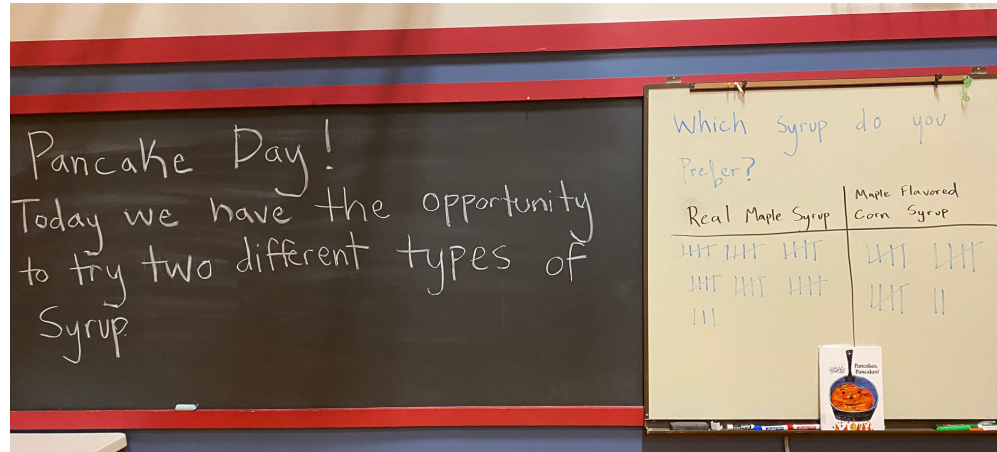 Pancake Day!
Today we have the opportunity
to try two different types of
Syrup.
Which Syrup do you
Prefer?
Real Maple Syrup
Maple Flavored
Corn Syrup
Pancakes,
Pancakes!